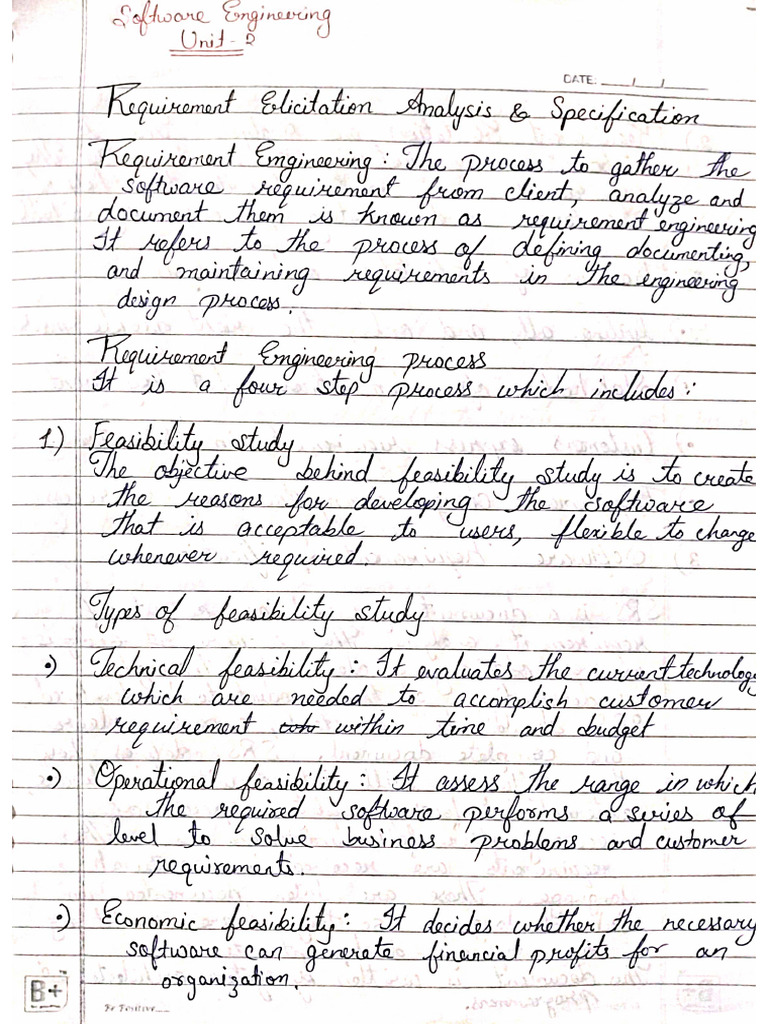 Software Engineering
Unit-2
DATE: __/__/____
Requirement Elicitation Analysis & Specification
Requirement Engineering: The process to gather the
software requirement from client, analyze and
document them is known as requirement engineering
It refers to the process of defining documenting,
and maintaining requirements in the engineering
design process.
Requirement Engineering process
It is a four step process which includes:
1) Feasibility study
The objective behind feasibility study is to create
the reasons for developing the software
that is acceptable to users, flexible to change
whenever required.
Types of feasibility study
•) Technical feasibility: It evaluates the current technology
which are needed to accomplish customer
requirement within time and budget
•) Operational feasibility: It assess the range in which
the required software performs a series of
level to solve business problems and customer
requirements.
•) Economic feasibility: It decides whether the necessary
software can generate financial profits for an
organization.
B+
Be Positive